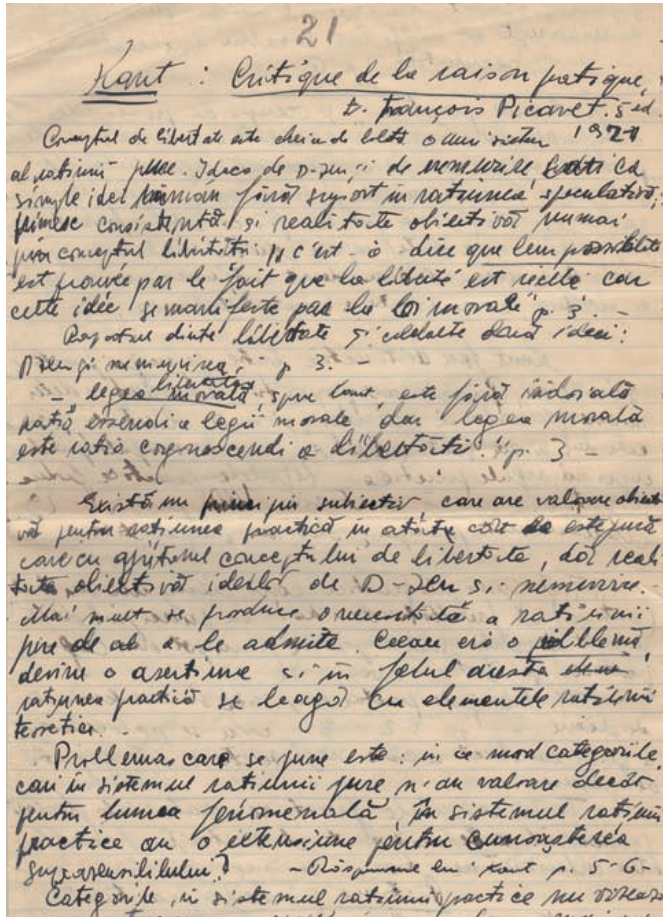 21
Kant : Critique de la raison pratique,
tr. François Picavet. 5 éd.
Conceptul de libertate este cheia de boltă a unui sistem 1921
al rațiunii pure. Ideea de D-zeu și de nemurire
simple idei rămân fără suport în rațiunea speculativă,
primesc consistență și realitate obiectivă numai
prin conceptul libertății: „c'est à dire que leur possibilité
est prouvée par le fait que la liberté est réelle car
cette idée se manifeste par la loi morale" p. 3. –
Raportul dintre libertate și celelalte două idei:
D-zeu și nemurirea, p 3. –
– legea morală libertatea, spune Kant este fără îndoială
ratio essendi a legii morale dar legea morală
este ratio cognoscendi a libertății." p. 3 –
Există un principiu subiectiv, care are valoare obiecti
vă pentru rațiunea practică în atât este
care cu ajutorul conceptului de libertate, dă reali
tate obiectivă ideilor de D-zeu și nemurire.
Mai mult se produce o necesitate a rațiunii
pure de a le admite. Ceeace era o problemă,
devine o asertiune și în felul acesta
rațiunea practică se leagă cu elementele rațiunii
teoretice. –
Problema care se pune este: in ce mod categoriile,
cari în sistemul rațiunii pure n'au valoare decât
pentru lumea fenomenală, în sistemul rațiunii
practice au o extensiune pentru cunoașterea
suprasensibilului? – Răspunsul lui Kant p. 5-6 –
Categoriile, in sistemul rațiunii practice nu vizează